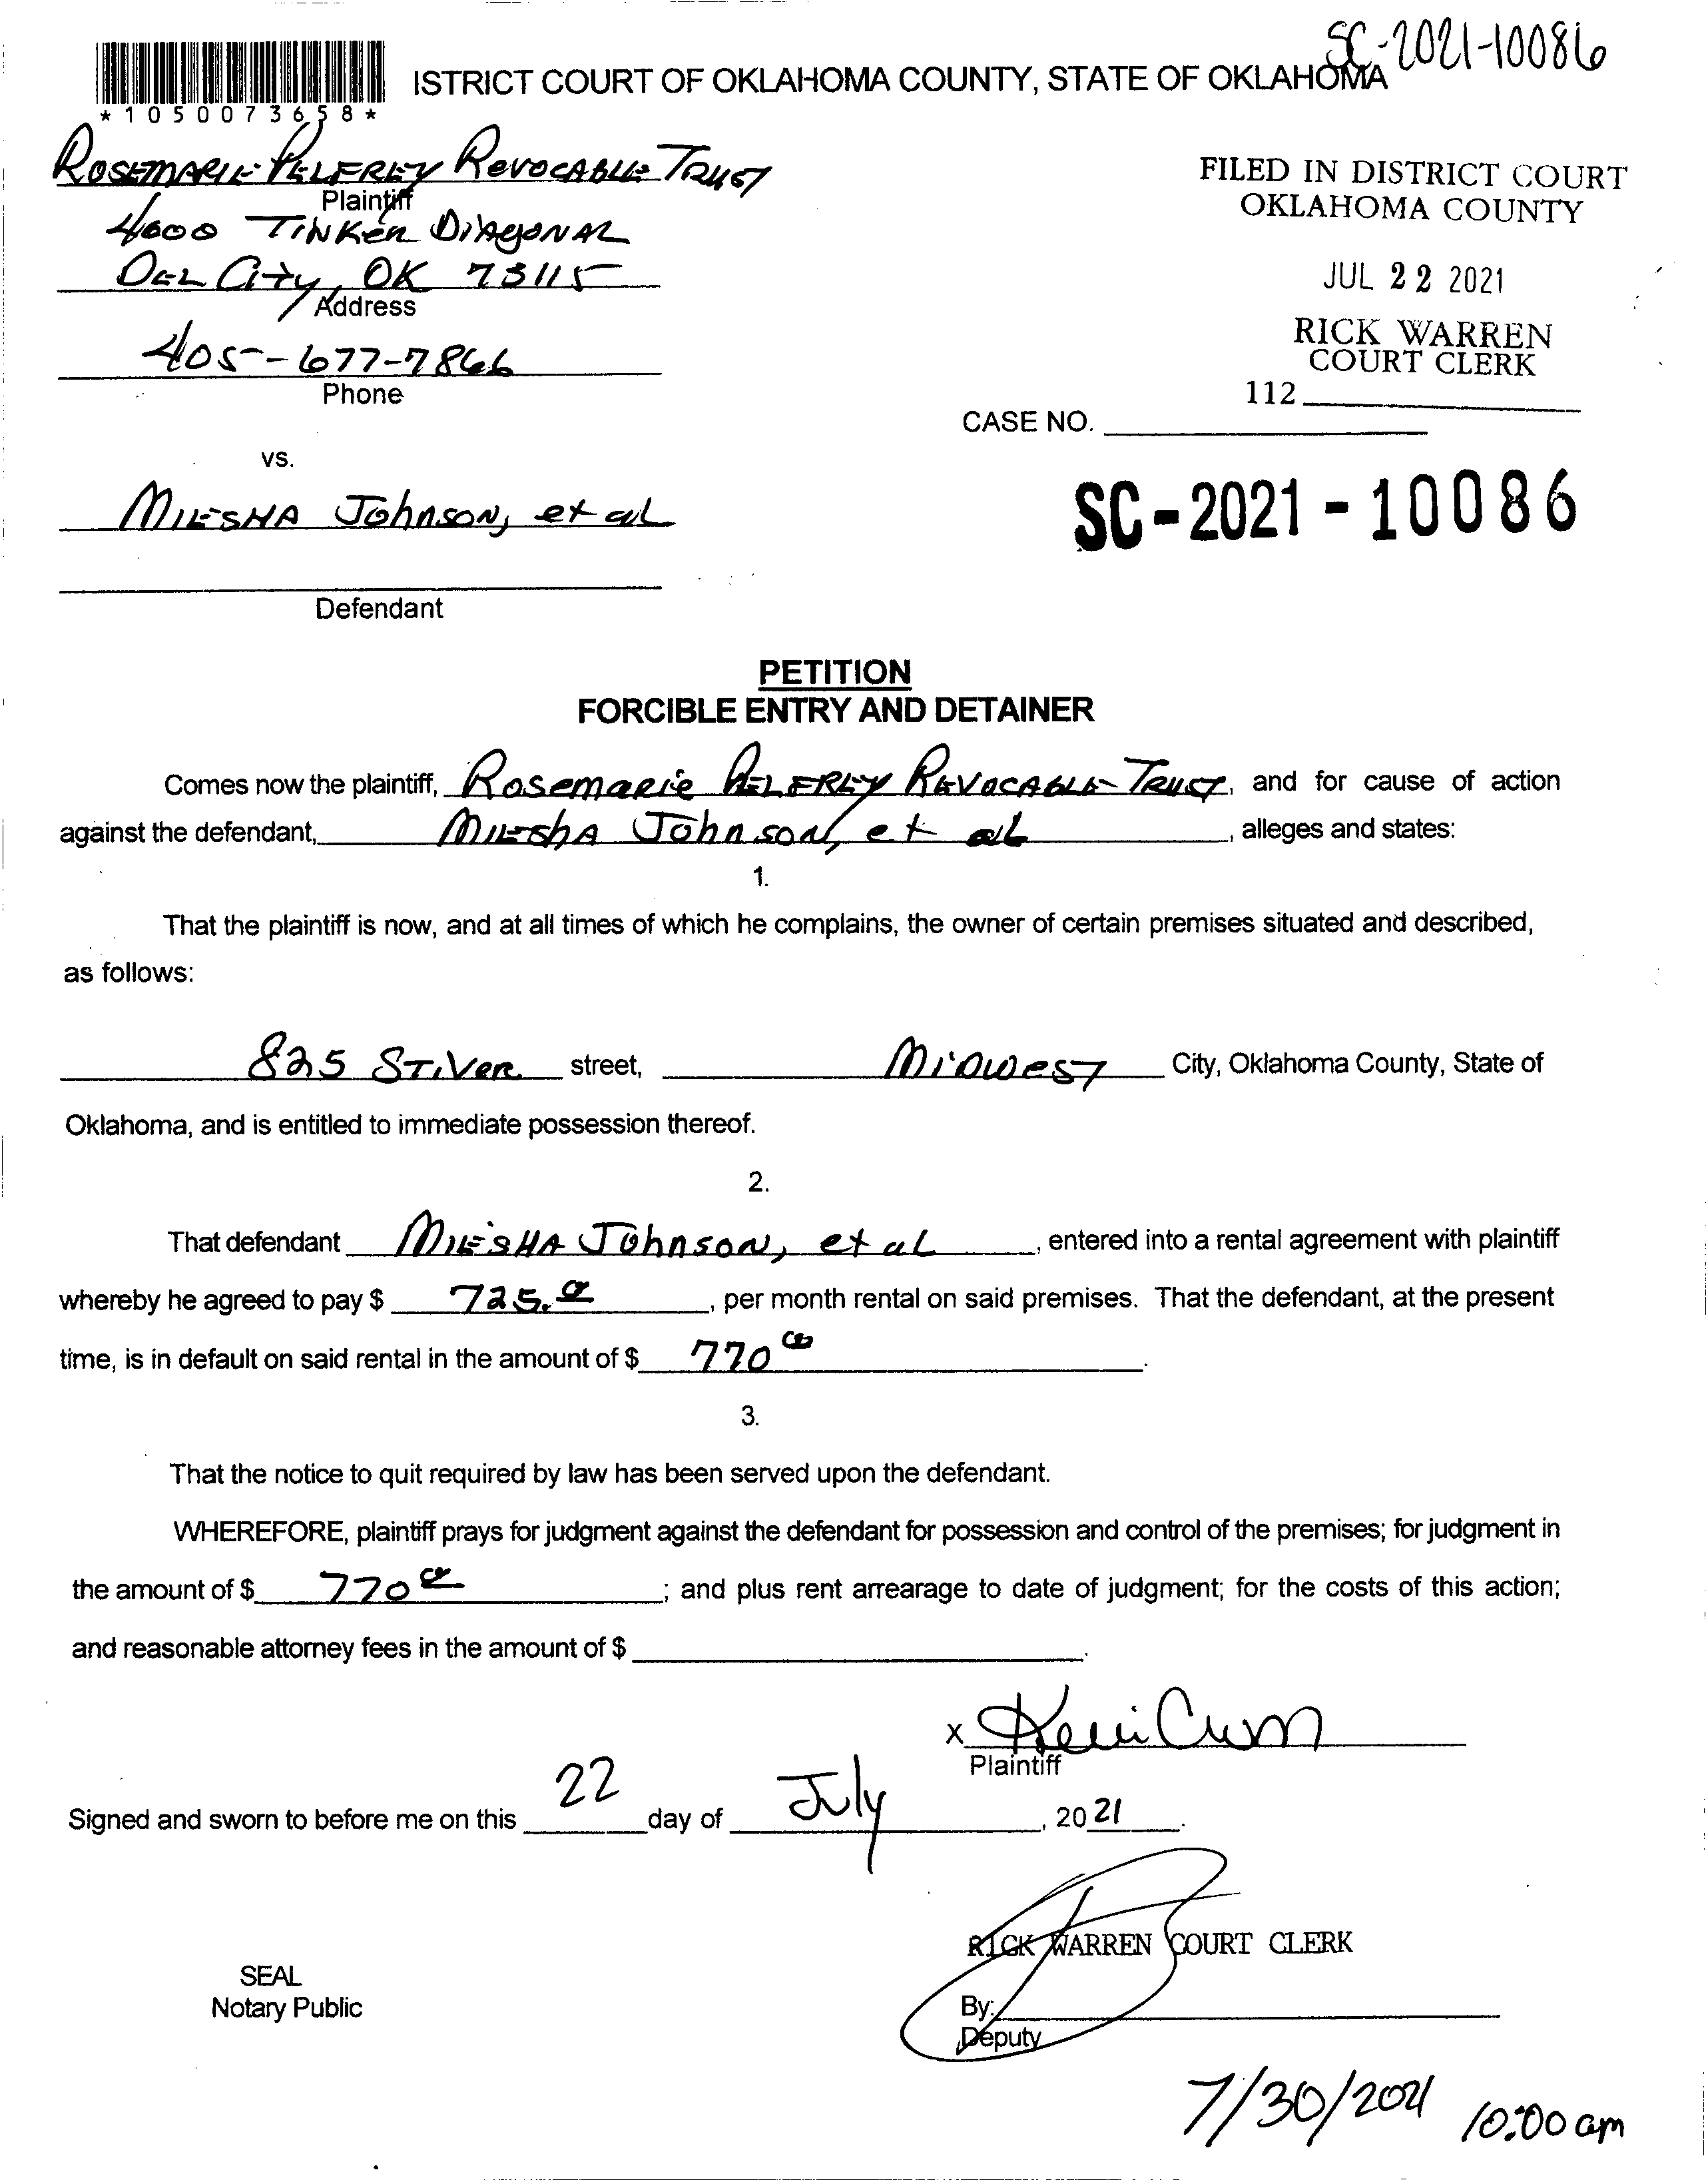 SC-2021-10086
ISTRICT COURT OF OKLAHOMA COUNTY, STATE OF OKLAHOMA
*1050073658*
ROSEMARIE PELFREY REVOCABLE TRUST
Plaintiff
4600 TINKER DIAGONAL
DEL City, OK 73115
Address
405-677-7866
Phone
FILED IN DISTRICT COURT
OKLAHOMA COUNTY
JUL 22 2021
RICK WARREN
COURT CLERK
112
CASE NO.
vs.
MIESHA Johnson, et al
SC-2021-10086
Defendant
PETITION
FORCIBLE ENTRY AND DETAINER
Comes now the plaintiff, Rosemarie PELFREY REVOCABLE TRUST, and for cause of action
against the defendant, MIESHA Johnson, et al, alleges and states:
1.
That the plaintiff is now, and at all times of which he complains, the owner of certain premises situated and described,
as follows:
825 STIVER street, MIDWEST City, Oklahoma County, State of
Oklahoma, and is entitled to immediate possession thereof.
2.
That defendant MIESHA Johnson, et al, entered into a rental agreement with plaintiff
whereby he agreed to pay $ 725.00, per month rental on said premises. That the defendant, at the present
time, is in default on said rental in the amount of $ 770 00.
3.
That the notice to quit required by law has been served upon the defendant.
WHEREFORE, plaintiff prays for judgment against the defendant for possession and control of the premises; for judgment in
the amount of $ 770 00; and plus rent arrearage to date of judgment; for the costs of this action;
and reasonable attorney fees in the amount of $ .
X
Plaintiff
Signed and sworn to before me on this 22 day of July, 2021.
RICK WARREN COURT CLERK
SEAL
Notary Public
By:
Deputy
7/30/2021 10:00 am